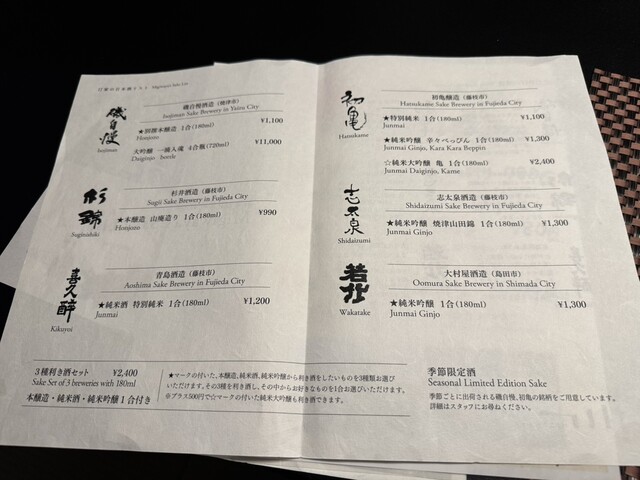 磯自慢
Isojiman
磯自慢酒造（焼津市）
Isojiman Sake Brewery in Yaizu City
★別撰本醸造 1合(180ml) ¥1,100
Honjozo
大吟醸 一滴入魂 4合瓶(720ml) ¥11,000
Daiginjo bottle
杉錦
Suginishiki
杉井酒造（藤枝市）
Sugii Sake Brewery in Fujieda City
★本醸造 山廃造り 1合(180ml) ¥990
Honjozo
喜久酔
Kikuyoi
青島酒造（藤枝市）
Aoshima Sake Brewery in Fujieda City
★純米酒 特別純米 1合(180ml) ¥1,200
Junmai
3種利き酒セット ¥2,400
Sake Set of 3 breweries with 180ml
本醸造・純米酒・純米吟醸1合付き
★マークの付いた、本醸造、純米酒、純米吟醸から利き酒をしたいものを3種類お選び
いただけます。その3種を利き酒し、その中からお好きなものを1合お選びいただけます。
※プラス500円で☆マークの付いた純米大吟醸も利き酒できます。
初亀
Hatsukame
初亀醸造（藤枝市）
Hatsukame Sake Brewery in Fujieda City
★特別純米 1合(180ml) ¥1,100
Junmai
★純米吟醸 辛々べっぴん 1合(180ml) ¥1,300
Junmai Ginjo, Kara Kara Beppin
☆純米大吟醸 亀 1合(180ml) ¥2,400
Junmai Daiginjo, Kame
志太泉
Shidaizumi
志太泉酒造（藤枝市）
Shidaizumi Sake Brewery in Fujieda City
★純米吟醸 焼津山田錦 1合(180ml) ¥1,300
Junmai Ginjo
若竹
Wakatake
大村屋酒造（島田市）
Oomura Sake Brewery in Shimada City
★純米吟醸 1合(180ml) ¥1,300
Junmai Ginjo
季節限定酒
Seasonal Limited Edition Sake
季節ごとに出荷される磯自慢、初亀の銘柄をご用意しています。
詳細はスタッフにお尋ねください。